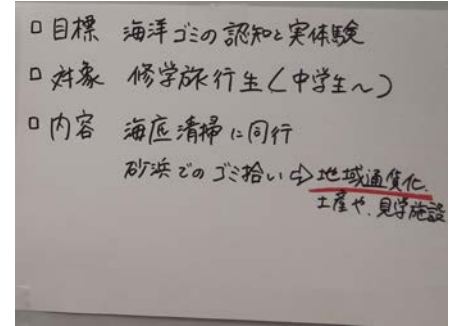 □ 目標 海洋ゴミの認知と実体験
□ 対象 修学旅行生(中学生~)
□ 内容 海底清掃に同行
砂浜でのゴミ拾い⇨地域通貨化、
土産や、見学施設